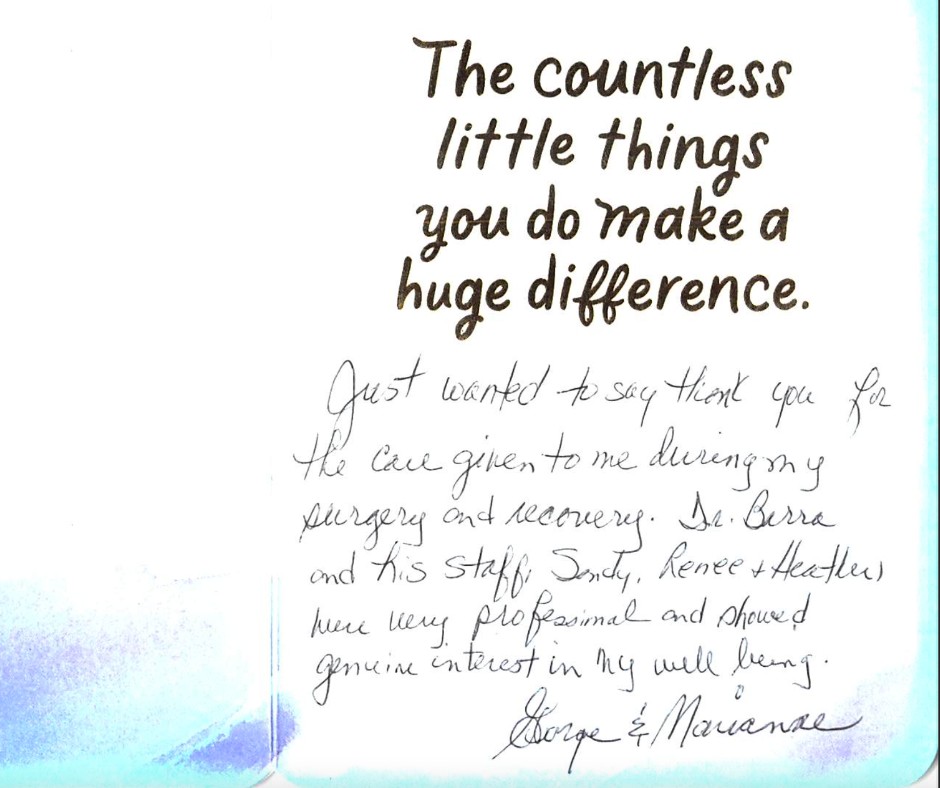 The countless
little things
you do make a
huge difference.
Just wanted to say thank you for
the care given to me during my
surgery and recovery. Dr. Berra
and his staff, Sandy, Renee & Heather,
were very professional and showed
genuine interest in my well being.
George & Marianne